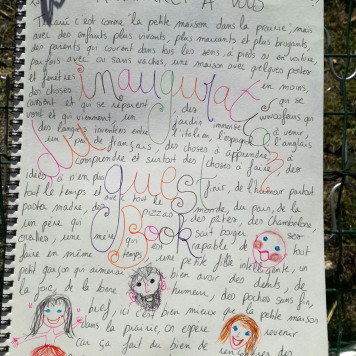 c'est comme la petite maison dans la prairie, mais
avec des enfants plus vivants, plus marrants et plus bruyants,
des parents qui courent dans tous les sens, à pieds ou en voiture,
parfois avec ou sans vaches, une maison avec quelques portes
et fenêtres en moins,
des choses inaugurat qui se
cassent et qui se réparent, des wwoofeurs qui
vont et qui viennent, un jardin immense à venir,
des langues inventées entre l'italien, l'espagnol, l'anglais
un peu de français, des choses à apprendre, à
comprendre et surtout des choses à faire, des
idées à n'en plus finir, de l'humour partout
tout le temps et avec tout le monde, du pain, de la
guest
pasta madre, des pizzas, des fêtes, des chamboltone,
Book
un père qui sait ranger ses
craies, une mère qui est capable de tout
faire en même temps, une petite fille intelligente, un
petit garçon qui aimerait bien avoir des dents, de
la joie, de la bonne humeur, des poches sans fin,
bref, ici c'est bien mieux que la petite maison
dans la prairie, on espère revenir
car ça fait du bien de rencontrer des